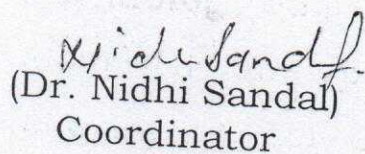 Nidhi Sandal
(Dr. Nidhi Sandal)
Coordinator